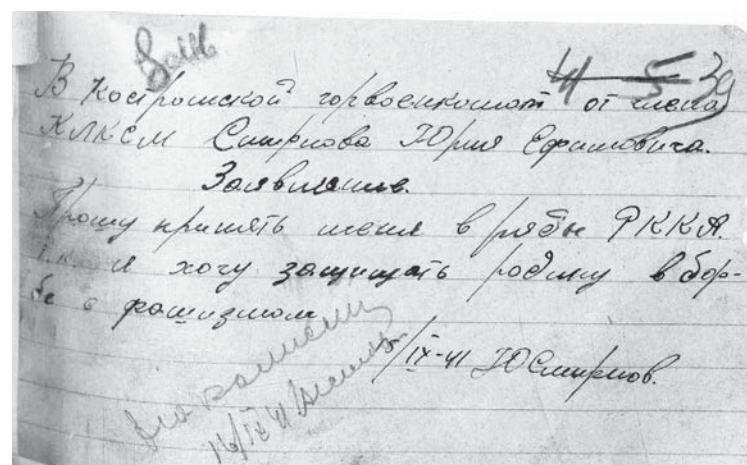 4 5 39
В Костромской горвоенкомат от члена
ВЛКСМ Смирнова Юрия Ефимовича.
Заявление.
Прошу принять меня в ряды РККА.
т.к. я хочу защищать родину в борь-
бе с фашизмом
/IX-41 ЮСмирнов.
16/IX 41